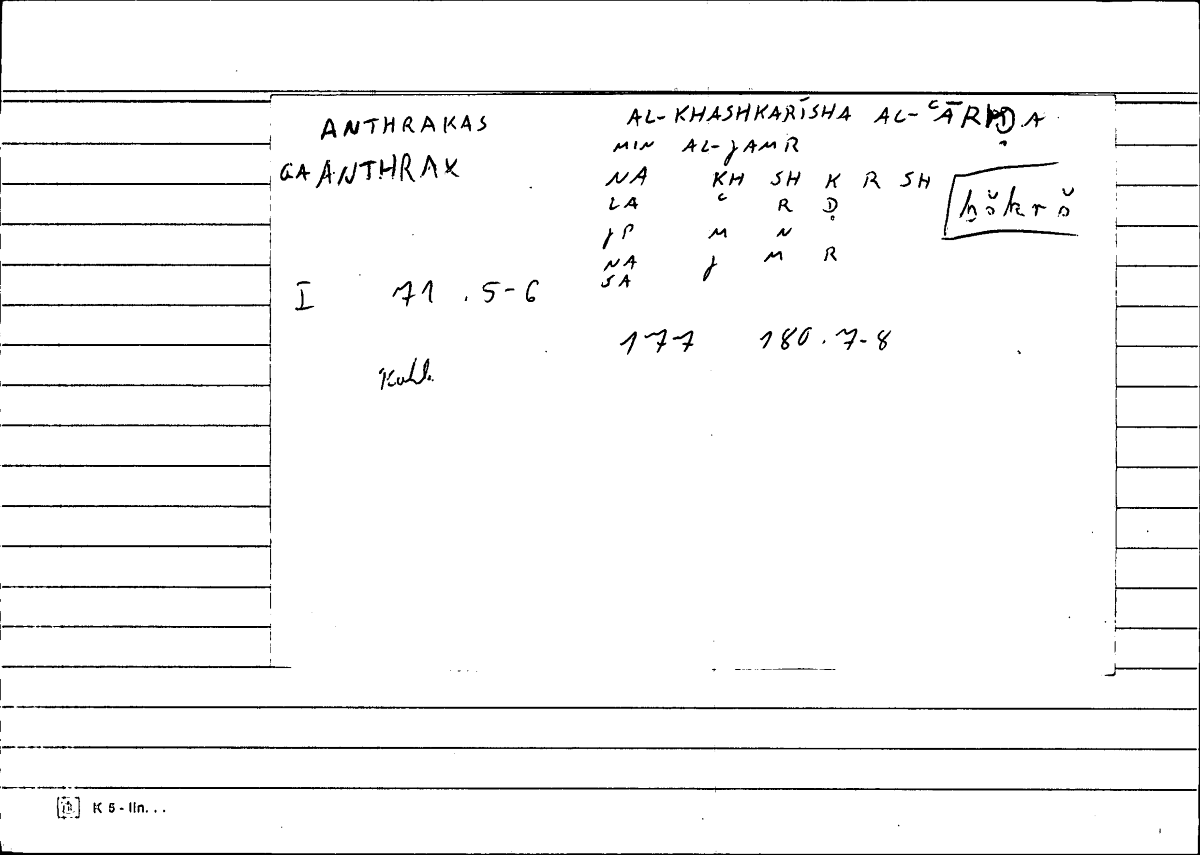 ANTHRAKAS
GA ANTHRAX
I 71 . 5-6
AL-KHASHKARĪSHA AL-ʿĀRIḌA
MIN AL-JAMR
NA KH SH K R SH
LA ʿ R Ḍ
JP M N
NA J M R
SA
ḫškrš
177 180.7-8
K 5 - lin...